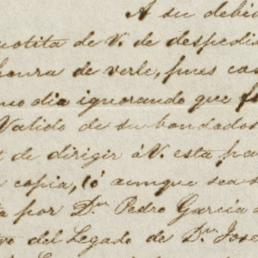 A su debid
uotita de V. de despedi
honra de verle, pues cas
mo dia ignorando que
Valido de su bondados
de dirigir á V. esta
copia, (ó aunque sea
por Dn. Pedro García
vo del Legado de Dn. Jose